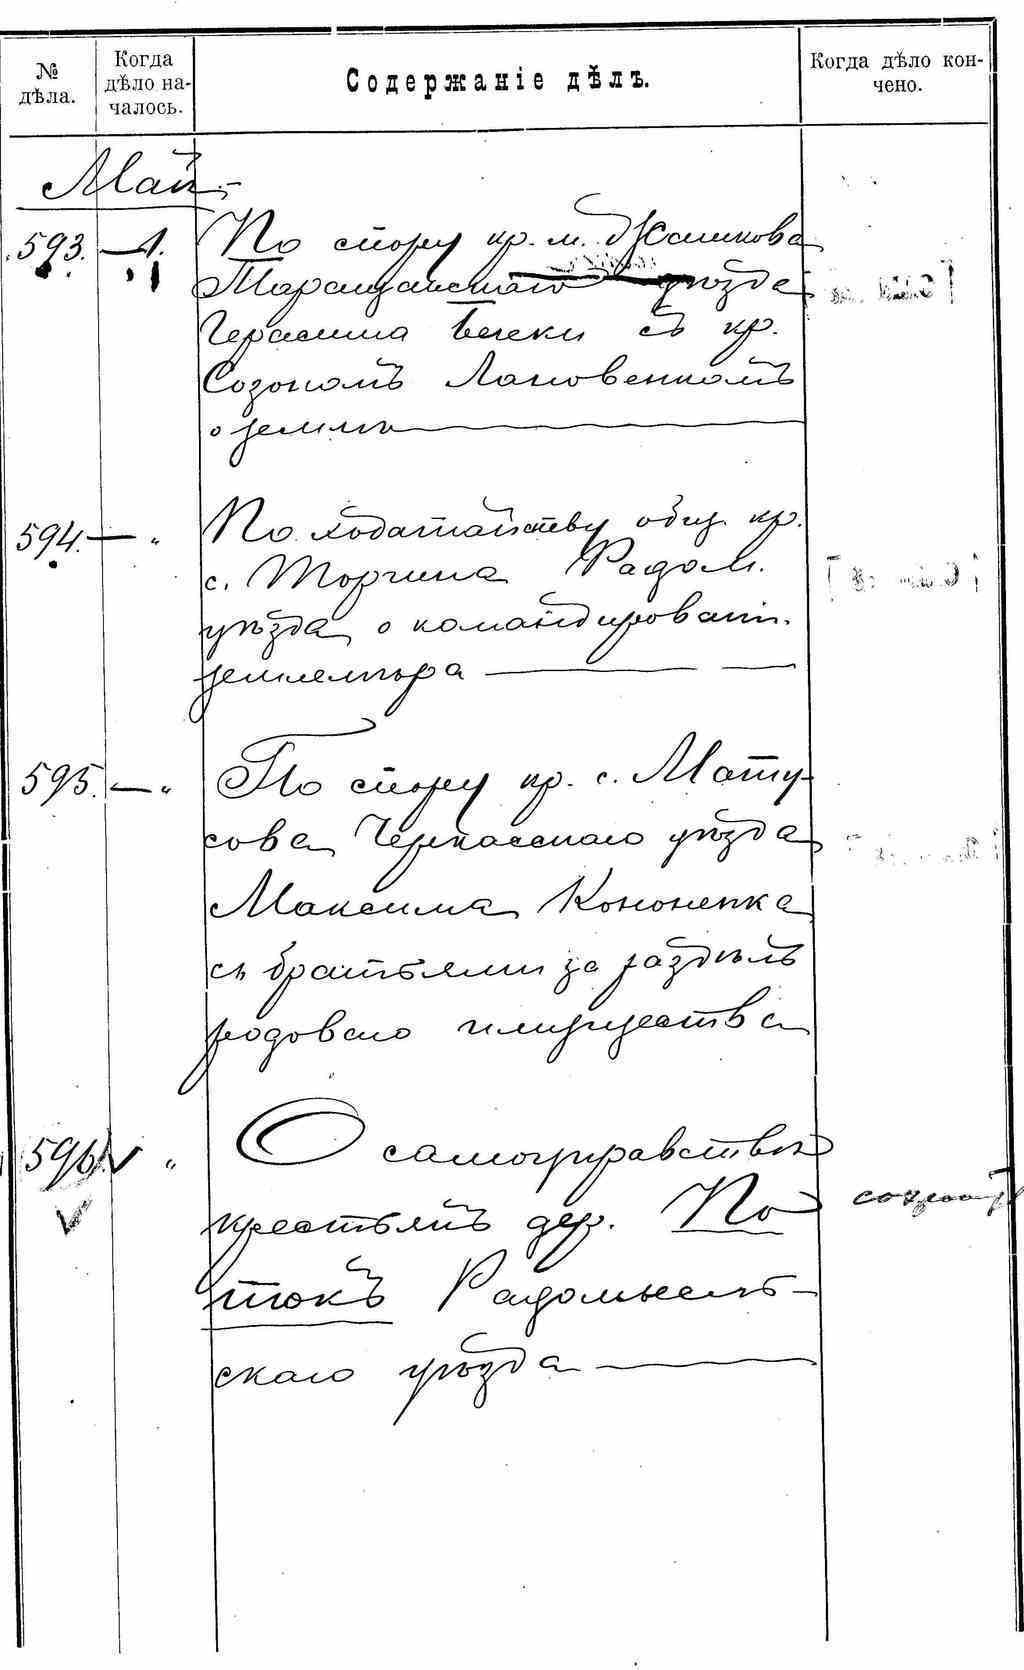 № дѣла.
Когда дѣло началось.
Содержаніе дѣлъ.
Когда дѣло кончено.
Май
593. — 1. По спору кр. м. Жашкова
Таращанскаго уѣзда
Герасима Бегеки съ кр.
Созономъ Лановенкомъ
о землѣ
594. — „ По ходатайству общ. кр.
с. Торчина Радом.
уѣзда о командирован.
землемѣра
595. — „ По спору кр. с. Мату-
сова Черкасскаго уѣзда
Максима Кононенка
съ братьями за раздѣлъ
родоваго имущества
596. „ О самоуправствѣ
крестьянъ дер. По
токъ Радомысль-
скаго уѣзда